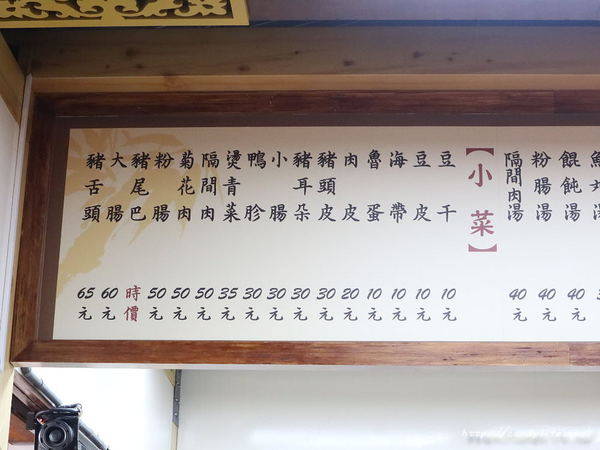 餛飩湯 40元
粉腸湯 40元
隔間肉湯 40元
【小菜】
豆干 10元
豆皮 10元
海帶 10元
魯蛋 10元
肉皮 20元
豬頭皮 30元
豬耳朵 30元
小腸 30元
鴨胗 30元
燙青菜 35元
隔間肉 50元
菊花肉 50元
粉腸 50元
豬尾巴 時價
大腸 60元
豬舌頭 65元